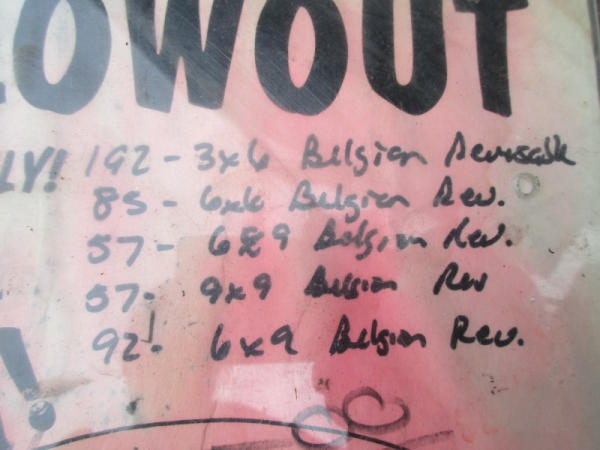 LOWOUT
LY! 192 - 3x6 Belgian Reversable
85 - 6x6 Belgian Rev.
57 - 6x9 Belgian Rev.
57 - 9x9 Belgian Rev
92 - 6x9 Belgian Rev.